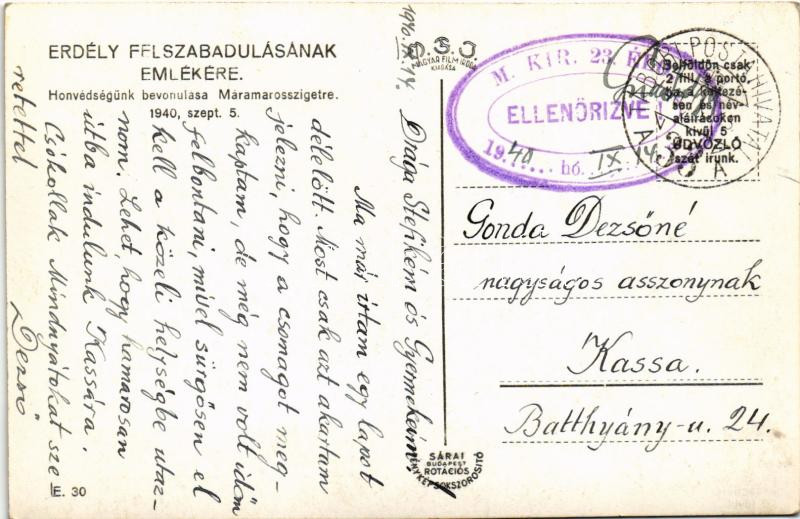 ERDÉLY FELSZABADULÁSÁNAK
EMLÉKÉRE.
Honvédségünk bevonulása Máramarosszigetre.
1940, szept. 5.
1940.IX.14.
Draga Stefikém és Gyermekeim!
Ma már írtam egy lapot
délelőtt. Most csak azt akartam
jelezni, hogy a csomagot meg-
kaptam, de még nem volt időm
felbontani, mivel sürgősen el
kell a közeli helységbe utaz-
nom. Lehet, hogy hamarosan
útba indulunk Kassára.
Csókollak Mindnyátokat sze
retettel
Dezső
E. 30
O.S.J
MAGYAR FILM IRODA
KIADÁSA
SÁRAI
BUDAPEST
ROTÁCIÓS
FÉNYKÉPSOKSZOROSÍTÓ
M. KIR. 23.
ELLENŐRIZVE
1940 hó. IX 14.
Belföldön csak
2 fill. a portó,
ha a keltezé-
sen és név-
aláírásokon
kívül 5
ÜDVÖZLŐ
szót írunk.
Gonda Dezsőné
nagyságos asszonynak
Kassa.
Batthyány-u. 24.